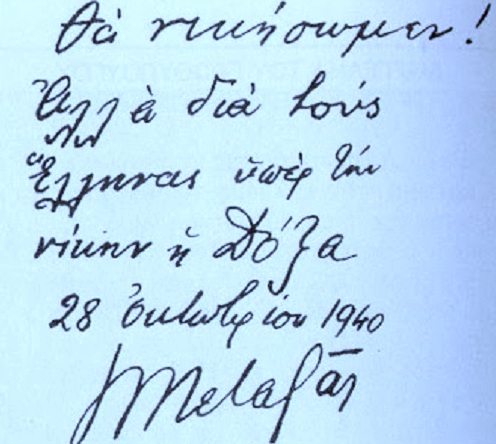 θὰ νικήσωμεν!
Ἀλλὰ διὰ τοὺς
Ἕλληνας ὑπὲρ τὴν
νίκην ἡ Δόξα
28 Ὀκτωβρίου 1940
Ι Μεταξᾶς